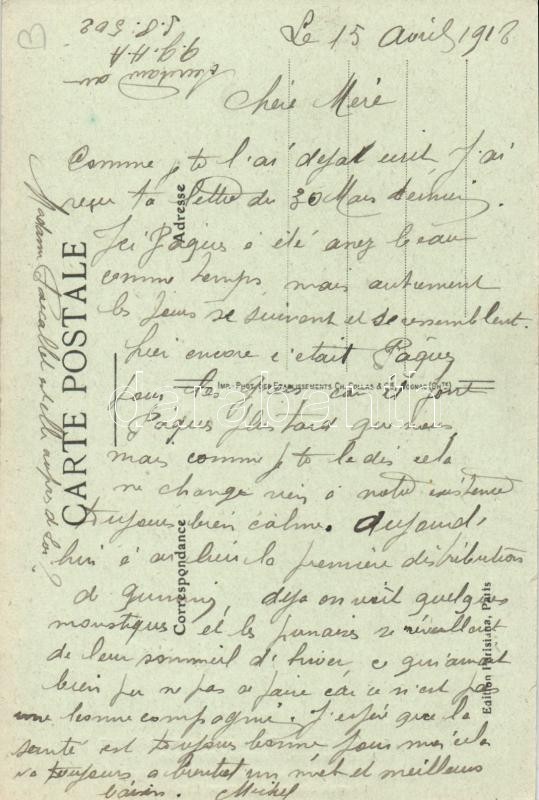 Le 15 avril 1918
Chére Mére
Comme je te l'ai dejat ecrit J'ai
reçu ta lettre du 30 Mars dernier.
Ici Pâques a été assez beau
comme temps, mais autrement
les jours se suivent et se ressemblent.
hier encore c'était Pâques
pour les car ils font
Pâques plus tard que nous
mais comme je te le dis cela
ne change rien à notre existence
toujours bien calme. Aujourd,
hui à eu lieu la première distribution
de quinine, deja on voit quelques
moustiques et les punaises se réveillent
de leur sommeil d'hiver, ce
bien pu ne pas se faire car ce n'est pas
une bonne compagnie. J'espére que la
santé est toujours bonne pour moi cela
va toujours a bientot un mot et meilleurs
baisers. Michel
Madame
S.P. 502
CARTE POSTALE
Adresse
Correspondance
IMP. PHOT. DES ETABLISSEMENTS CH. COLLAS & Cie, COGNAC (Chte)
Edition Parisiana, Paris
B
darabanth